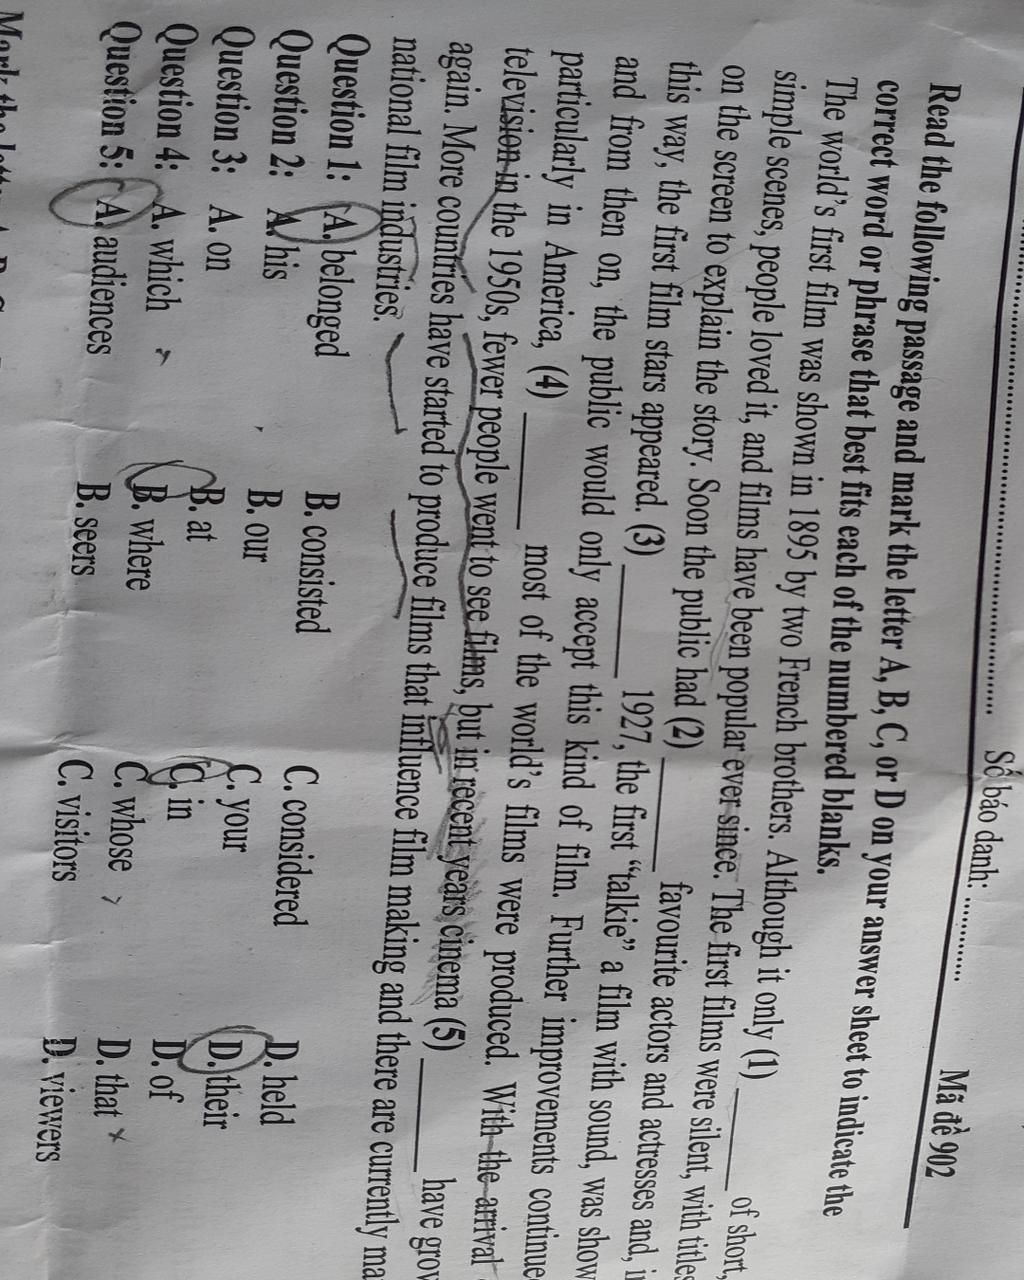 Số báo danh: ............
Mã đề 902
Read the following passage and mark the letter A, B, C, or D on your answer sheet to indicate the
correct word or phrase that best fits each of the numbered blanks.
The world's first film was shown in 1895 by two French brothers. Although it only (1) ______ of short,
simple scenes, people loved it, and films have been popular ever since. The first films were silent, with titles
on the screen to explain the story. Soon the public had (2) ______ favourite actors and actresses and, in
this way, the first film stars appeared. (3) ______ 1927, the first "talkie" a film with sound, was show
and from then on, the public would only accept this kind of film. Further improvements continue
particularly in America, (4) ______ most of the world's films were produced. With the arrival
television in the 1950s, fewer people went to see films, but in recent years cinema (5) ______ have grow
again. More countries have started to produce films that influence film making and there are currently ma
national film industries.
Question 1: A. belonged B. consisted C. considered D. held
Question 2: A. his B. our C. your D. their
Question 3: A. on B. at C. in D. of
Question 4: A. which B. where C. whose D. that
Question 5: A. audiences B. seers C. visitors D. viewers